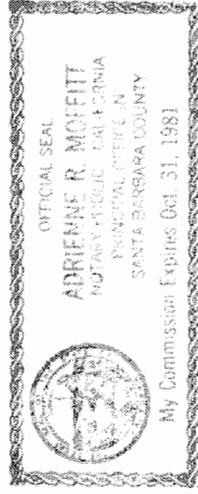 OFFICIAL SEAL
ADRIENNE R. MOFFITT
NOTARY PUBLIC CALIFORNIA
PRINCIPAL OFFICE IN
SANTA BARBARA COUNTY
My Commission Expires Oct. 31, 1981